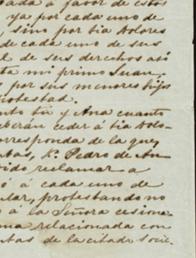 á favor de estos
ya por cada uno de
sino por tia Dolores
de cada uno de sus
de sus derechos así
mi primo Juan
por sus menores hijos
protestad.
tia y Ana cuanto
deberán ceder á tia Dolo-
corresponda de la que
Pedro de An-
reclamar a
ó á cada uno de
protestando no
ó á la Señora cesiona-
relacionada con
de la citada Socie-